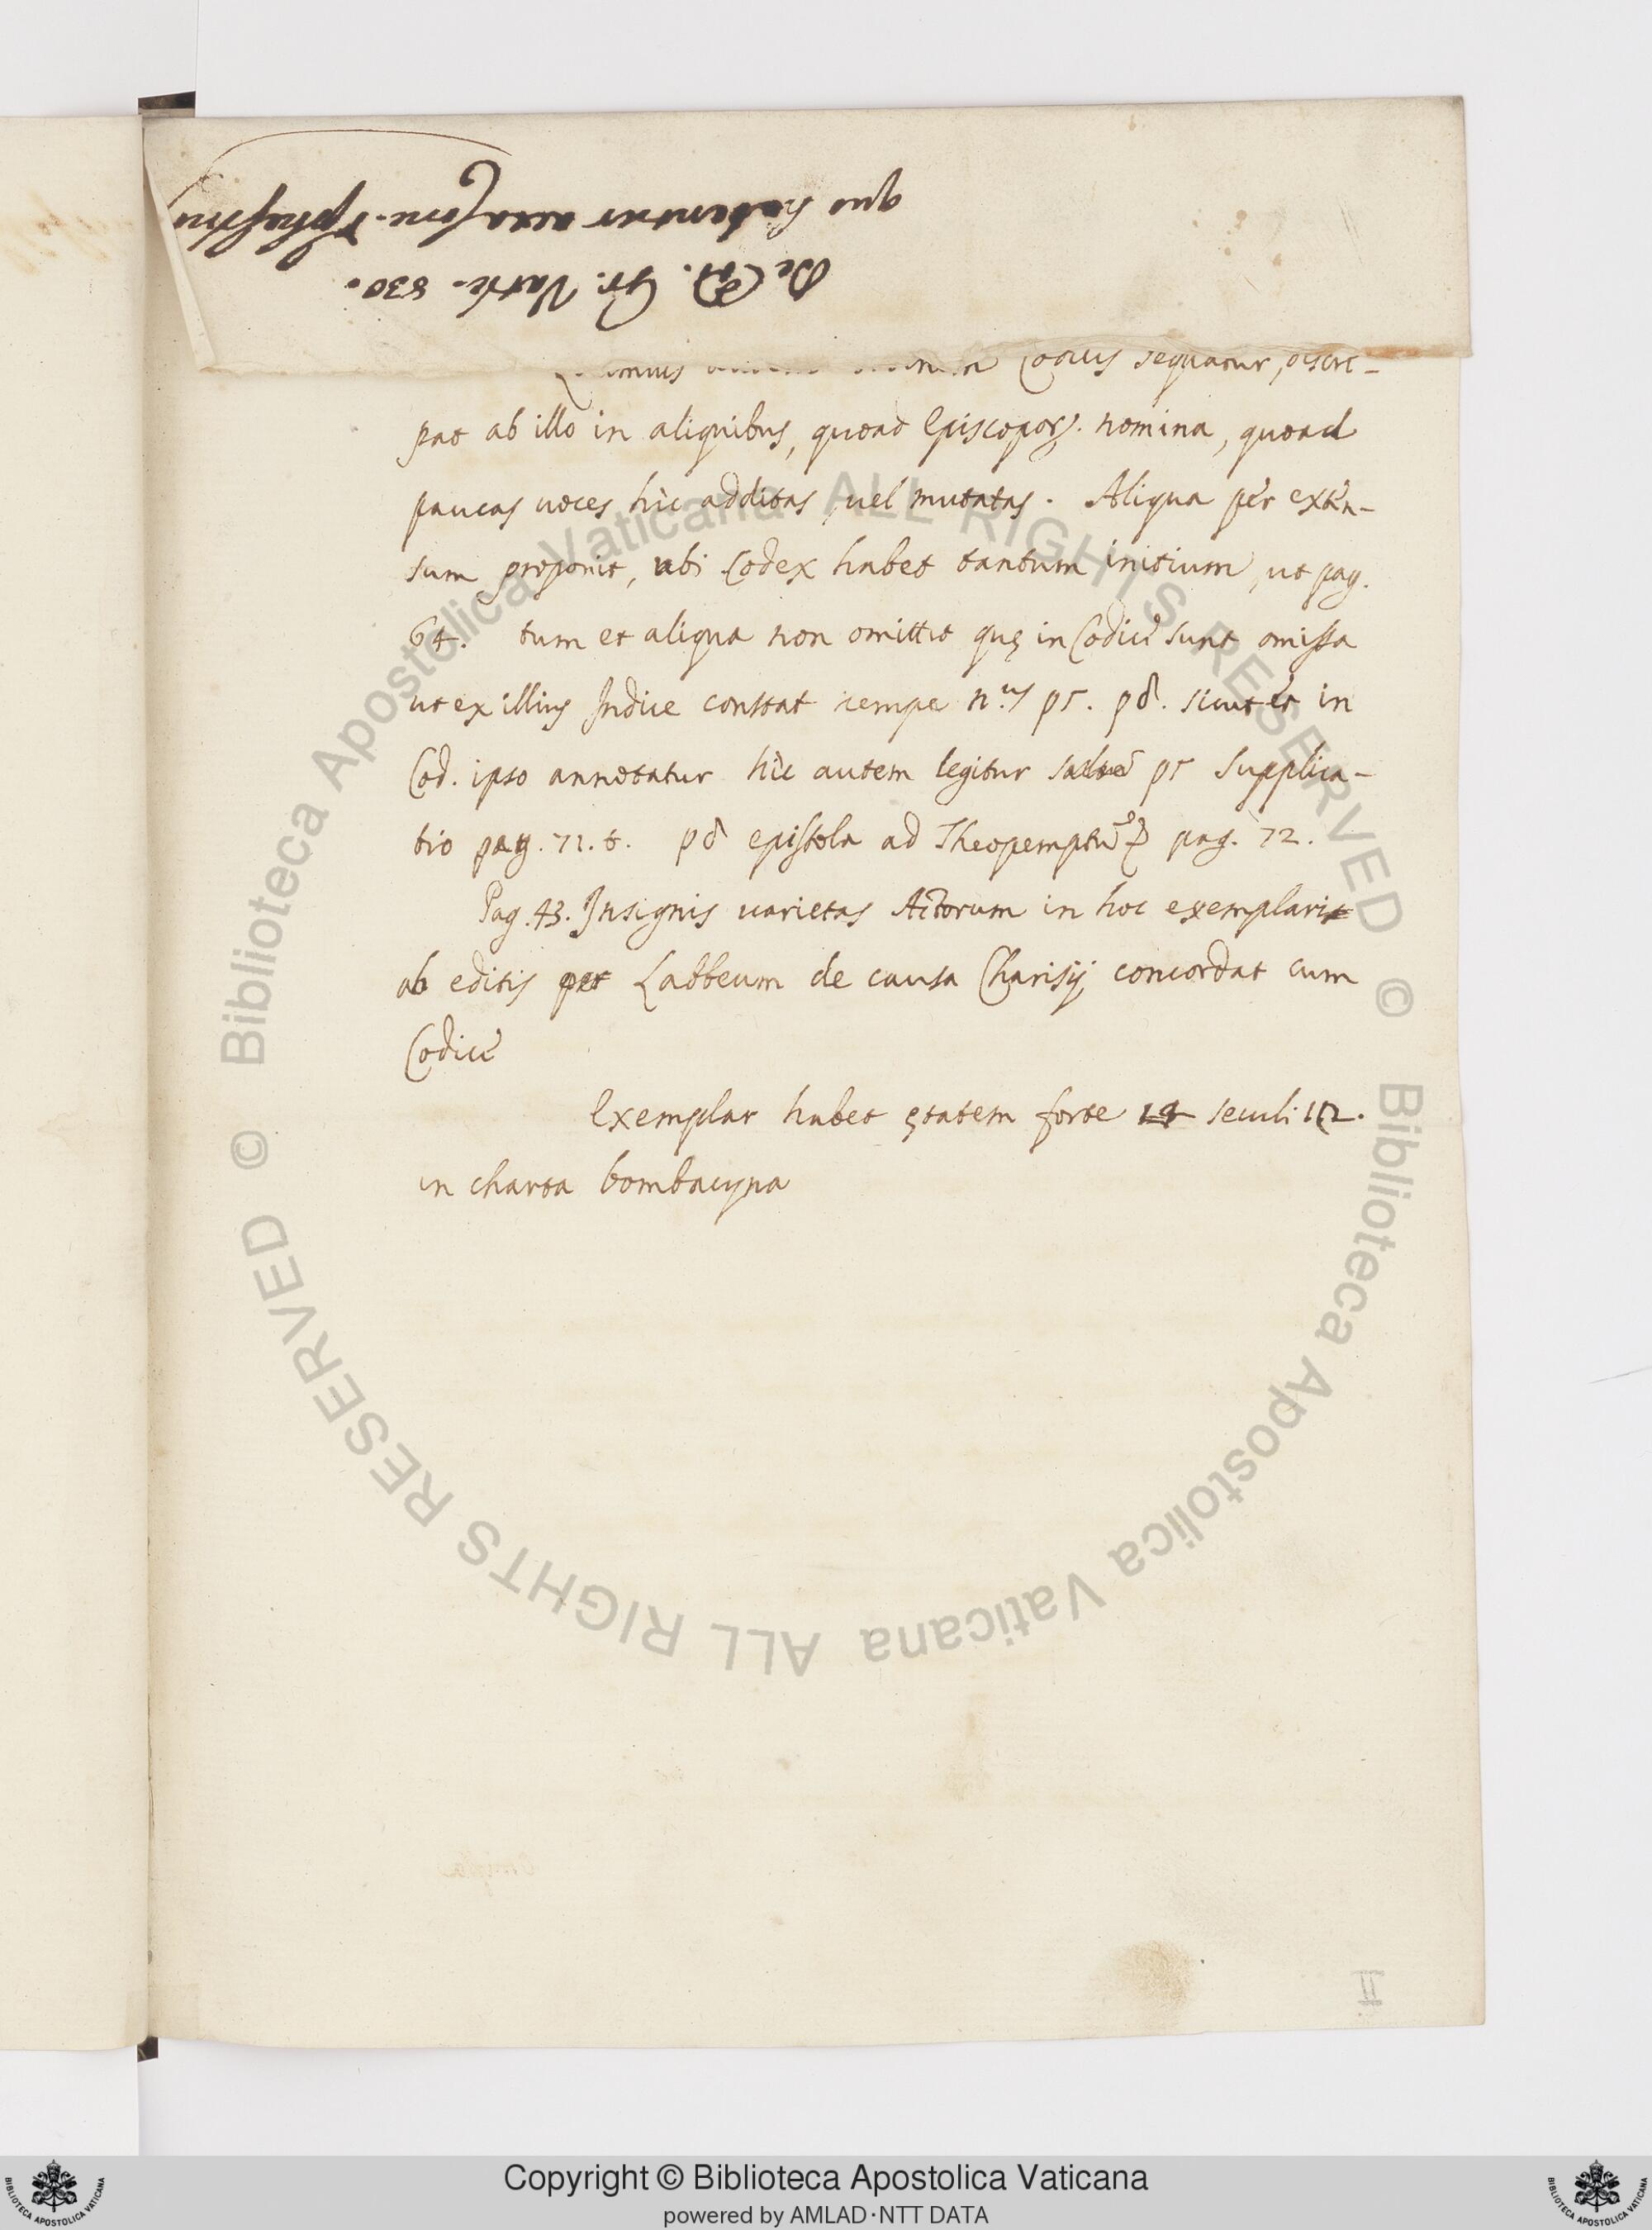 De Cod. Gr. Vatic. 830.
quo habentur acta conc. Ephesini
Codicis sequatur, discre-
pat ab illo in aliquibus, quoad Episcopor. nomina, quoad
paucas uoces hic additas, uel mutatas. Aliqua per exten-
sum proponit, ubi Codex habet tantum initium, ut pag.
64. tum et aliqua non omittit quę in Codice sunt omissa
ut ex illius Indice constat nempe n.us ρε. ρδ. sicut et in
Cod. ipso annotatur hic autem legitur ρε supplica-
tio pag. 71. t. ρδ epistola ad Theopemptū pag. 72.
Pag. 43. Insignis uarietas Actorum in hoc exemplari
ab editis per Labbeum de causa Charisij concordat cum
Codice
Exemplar habet ętatem forte seculi 12.
in charta bombacyna
II
© Biblioteca Apostolica Vaticana ALL RIGHTS RESERVED
© Biblioteca Apostolica Vaticana ALL RIGHTS RESERVED
Copyright © Biblioteca Apostolica Vaticana
powered by AMLAD·NTT DATA
BIBLIOTECA APOSTOLICA VATICANA
BIBLIOTECA APOSTOLICA VATICANA